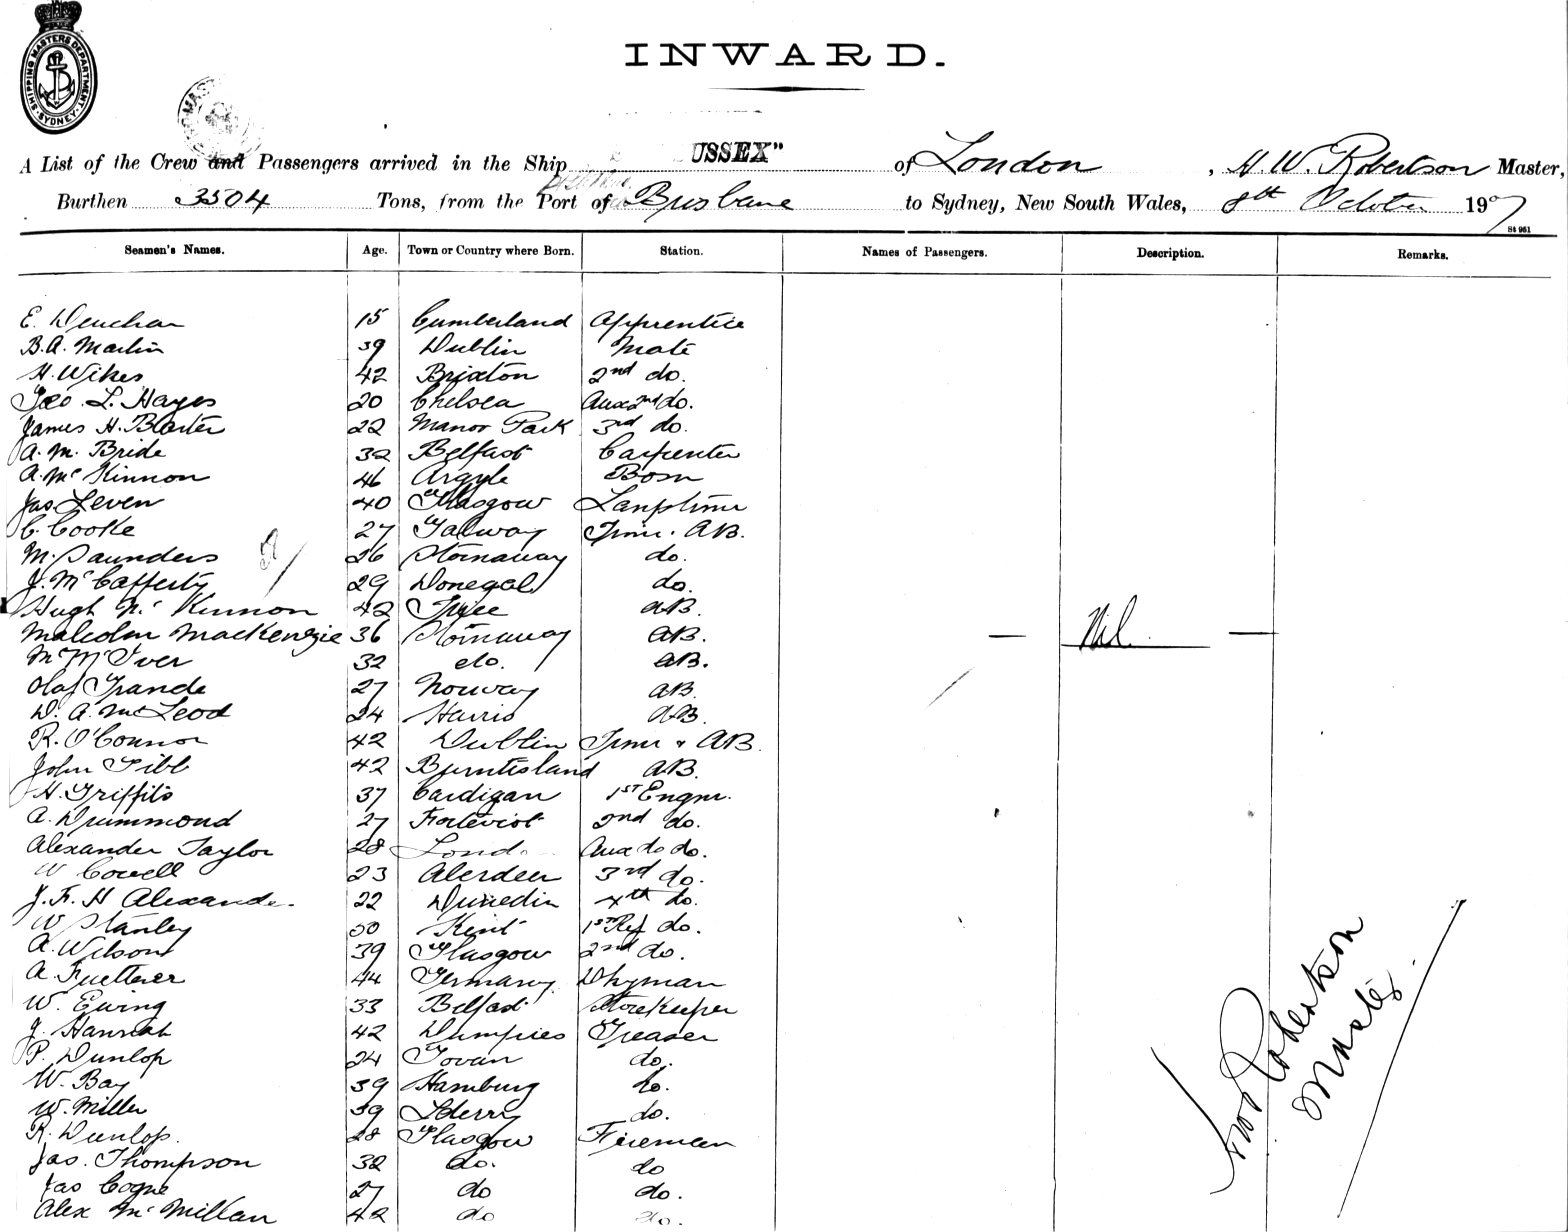 SHIPPING MASTERS DEPARTMENT
SYDNEY
INWARD.
A List of the Crew and Passengers arrived in the Ship USSEX" of London, H. W. Robertson Master,
Burthen 3504 Tons, from the Port of Brisbane to Sydney, New South Wales, 8th October 1907
St 961
Seamen's Names. Age. Town or Country where Born. Station. Names of Passengers. Description. Remarks.
E. Deuchar 15 Cumberland Apprentice
B. A. Martin 39 Dublin Mate
H. Wikes 42 Brixton 2nd do.
Geo. L. Hayes 20 Chelsea Aux 2nd do.
James H. Barter 22 Manor Park 3rd do.
A. M. Bride 32 Belfast Carpenter
A. McKinnon 46 Argyle Bosn
Jas. Leven 40 Glasgow Lamptrimr
C. Cooke 27 Galway Trimr. AB.
M. Saunders 26 Stornaway do.
J. McCafferty 29 Donegal do.
Hugh McKinnon 42 Tyree AB.
Malcolm MacKenzie 36 Stornaway AB. — Nil. —
M McIver 32 do. AB.
Olaf Trande 27 Norway AB.
D. A. McLeod 24 Harris AB.
R. O'Connor 42 Dublin Trimr & AB.
John Gibb 42 Burntisland AB.
H. Griffits 37 Cardigan 1st Engnr.
A. Drummond 27 Forteviot 2nd do.
Alexander Taylor 28 Lond Aux do do.
W Cowell 23 Aberdeen 3rd do.
J. F. H Alexander 22 Dunedin 4th do.
W Stanley 50 Kent 1st Ref do.
A. Wilson 39 Glasgow 2nd do.
A. Fuetterer 44 Germany Dkyman
W. Ewing 33 Belfast Storekeeper
J. Hannah 42 Dumfries Greaser
P. Dunlop 24 Govan do.
W. Bay 39 Hamburg do.
W. Miller 39 Lderry do.
R. Dunlop. 28 Glasgow Fireman
Jas. Thompson 32 do. do
Jas Cogne 27 do do.
Alex McMillan 42 do do.
Robertson
Master